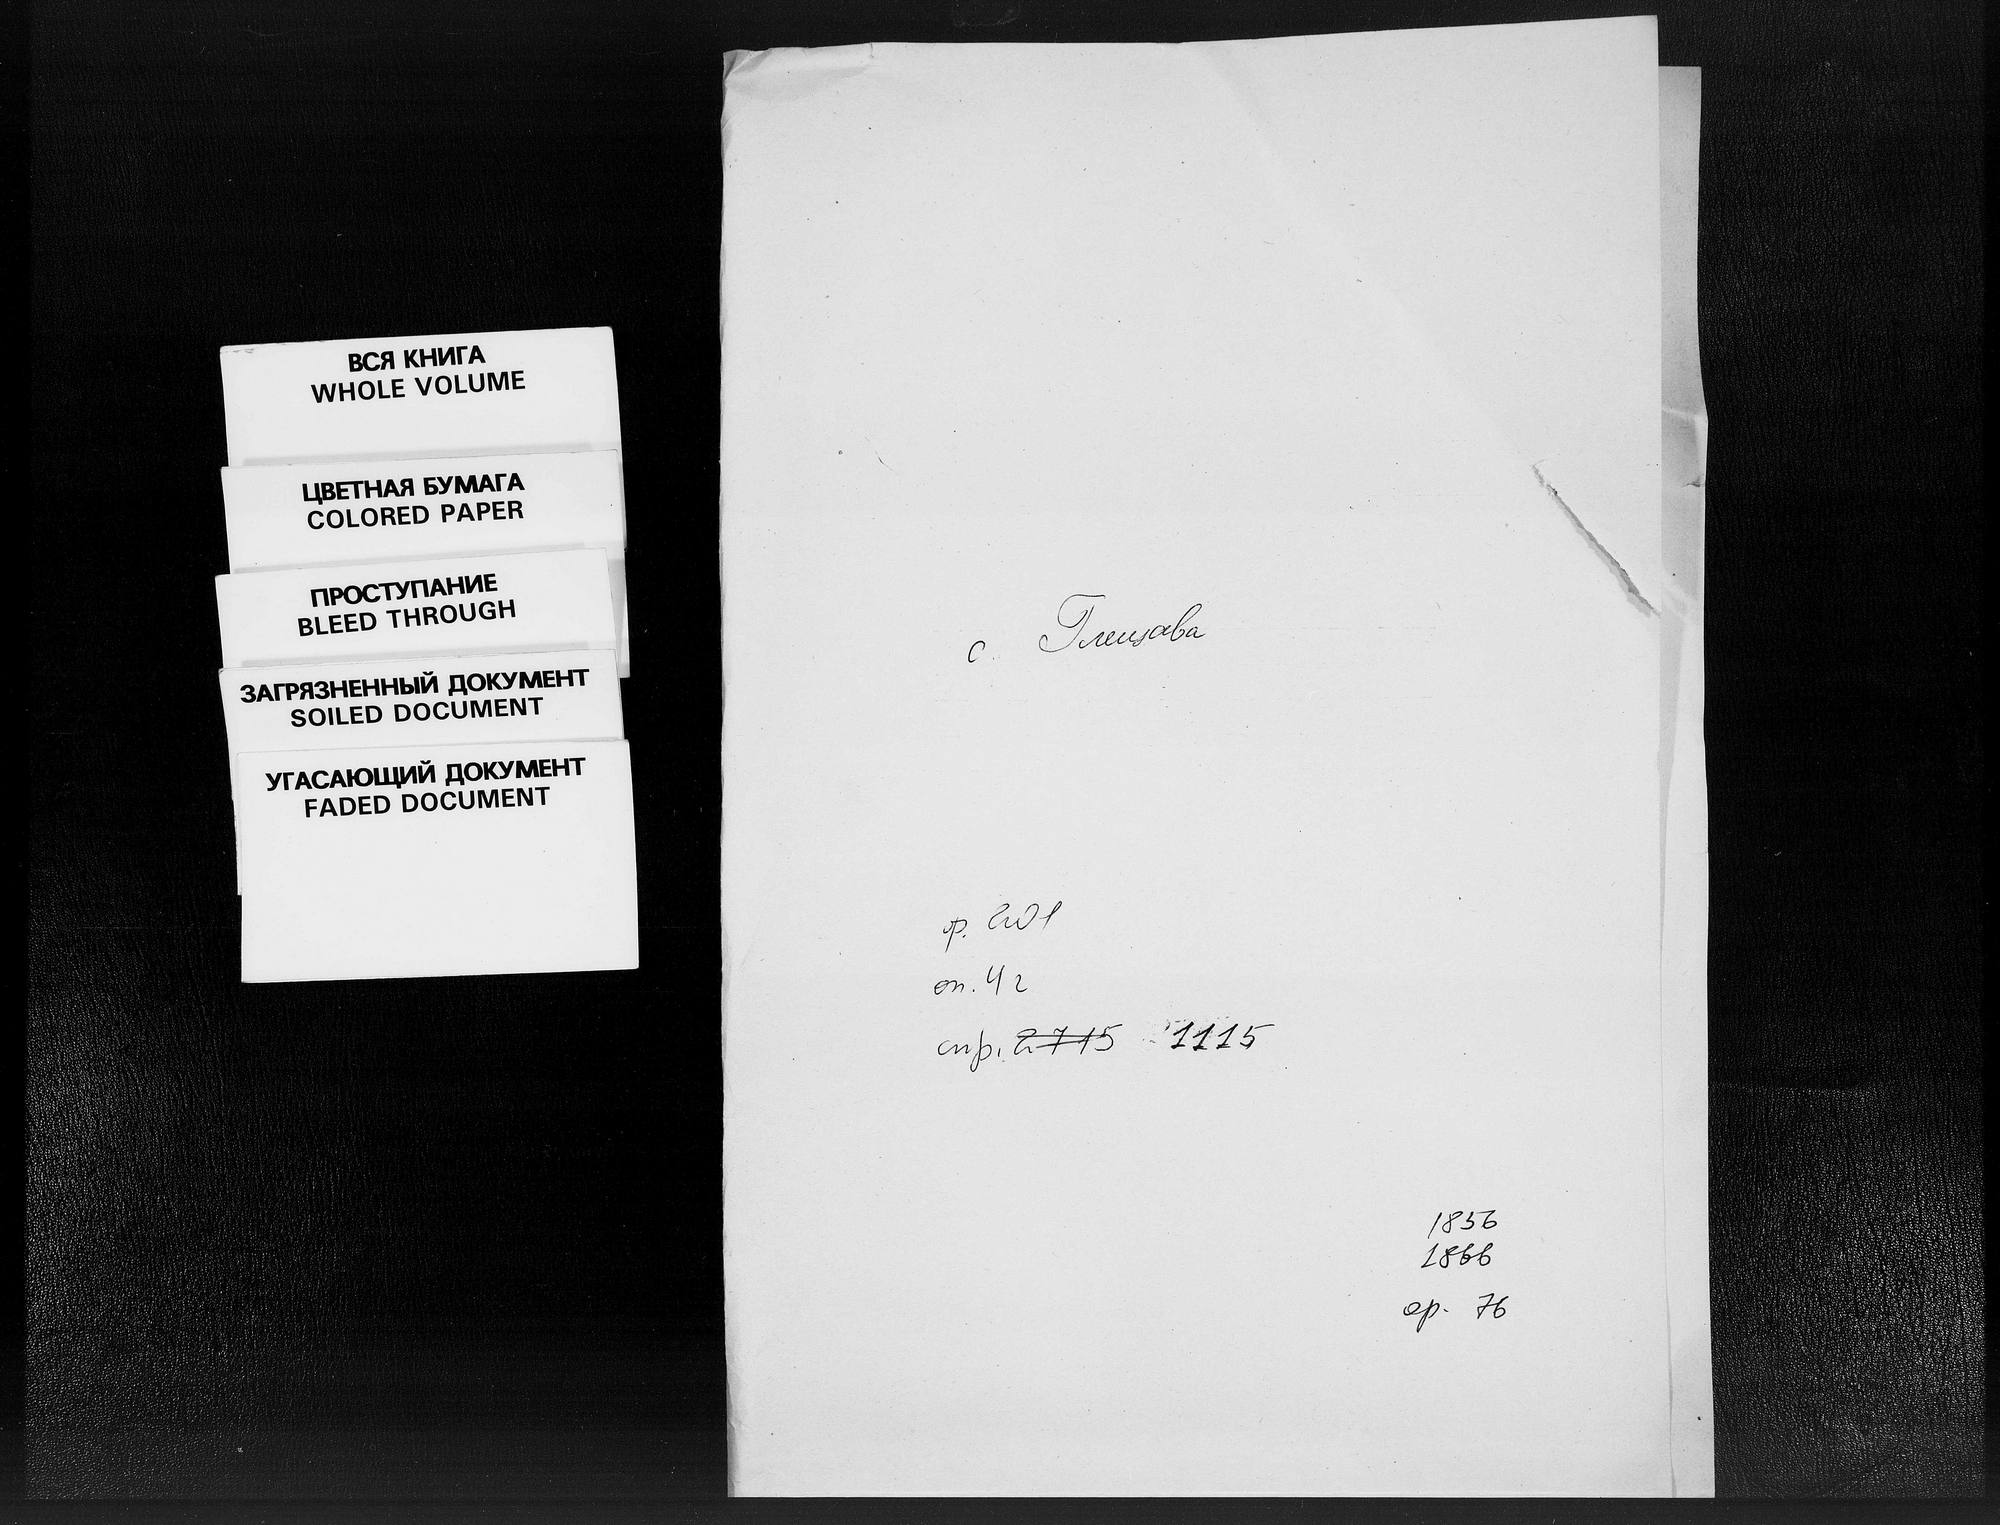 ВСЯ КНИГА
WHOLE VOLUME
ЦВЕТНАЯ БУМАГА
COLORED PAPER
ПРОСТУПАНИЕ
BLEED THROUGH
ЗАГРЯЗНЕННЫЙ ДОКУМЕНТ
SOILED DOCUMENT
УГАСАЮЩИЙ ДОКУМЕНТ
FADED DOCUMENT
с. Глещава
ф. 201
оп. 4г
спр. 2715 1115
1856
1866
ар. 76